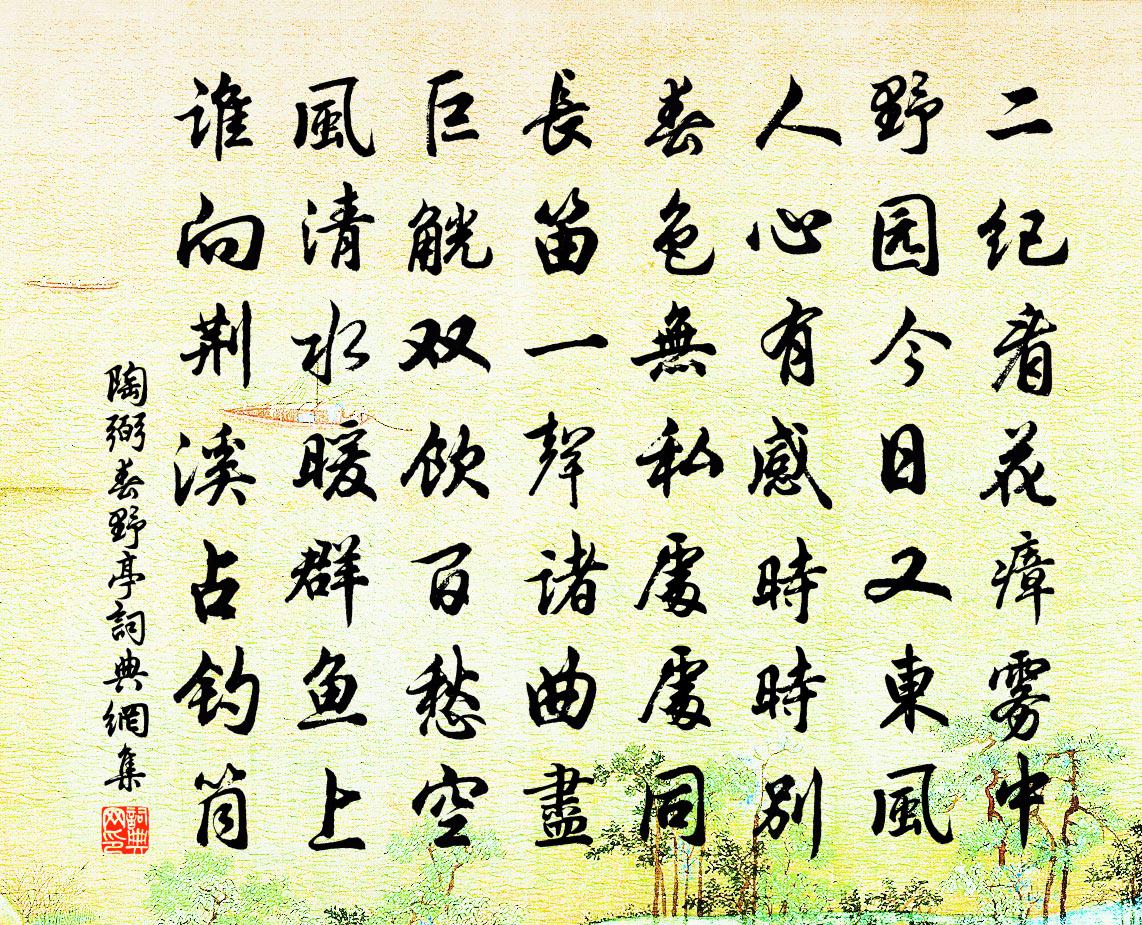 二纪看花瘴雾中
野园今日又東風
人心有感時時別
春色無私處處同
長笛一聲诸曲盡
巨觥双飲百愁空
風清水暖群鱼上
谁向荆溪占钓筒
陶弼春野亭詞典網集
詞典网印